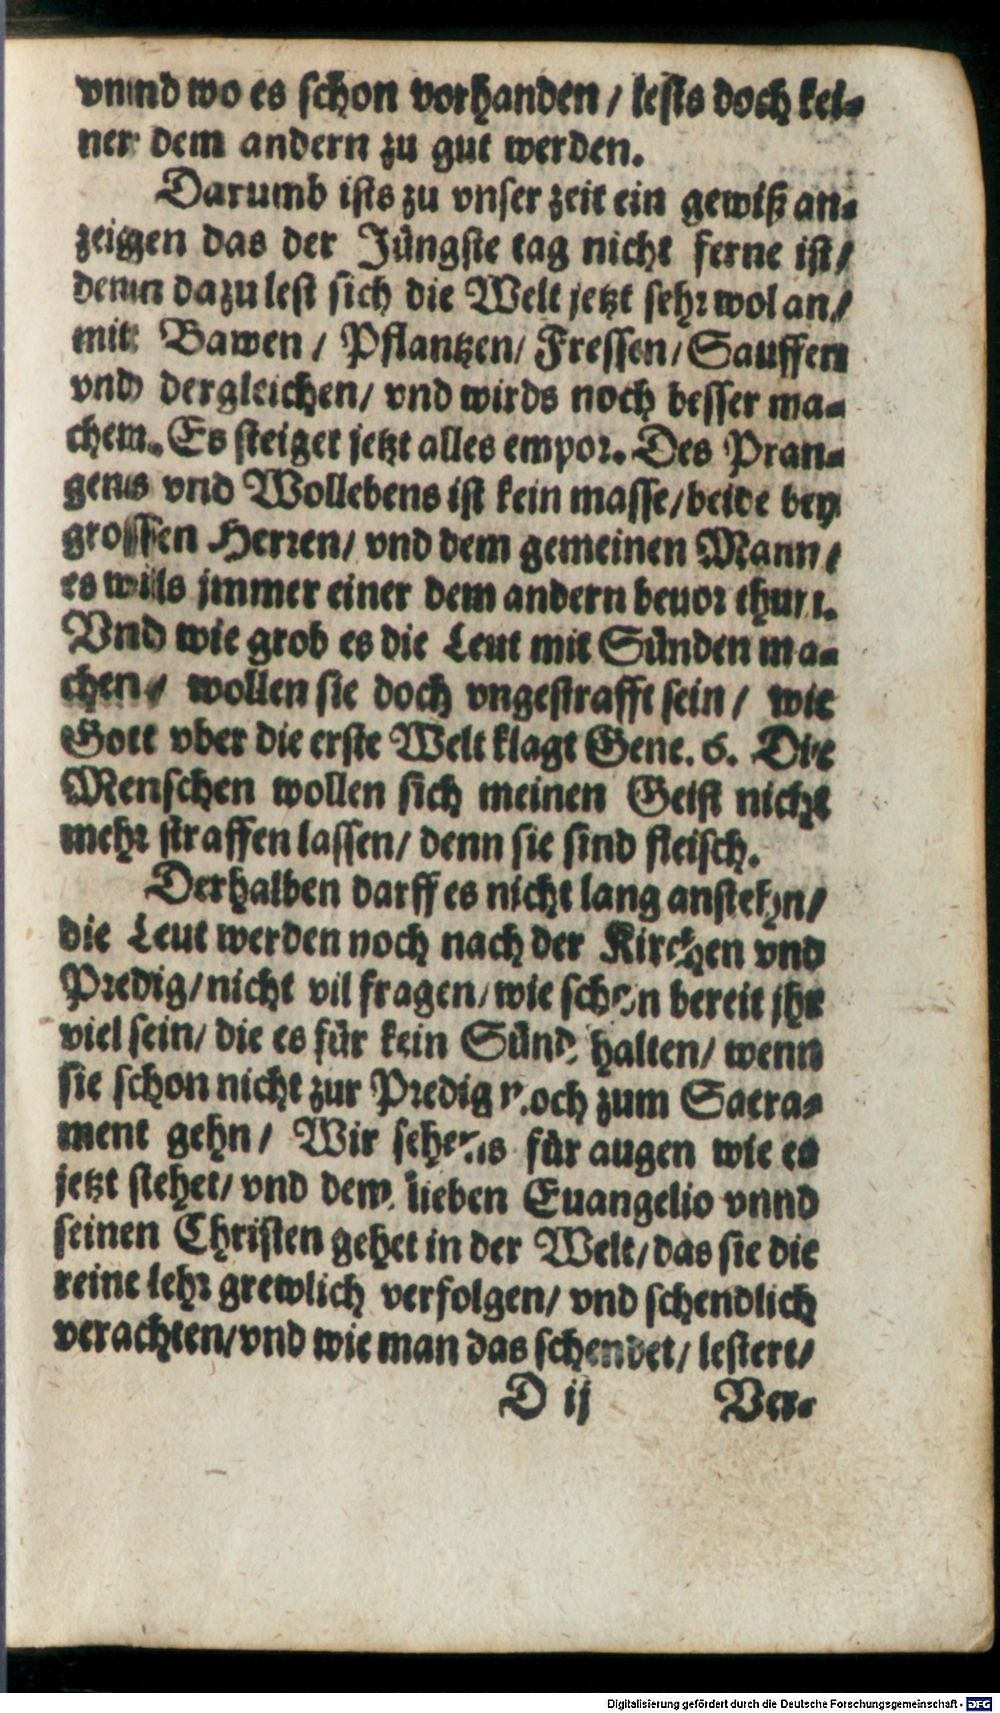 vnnd wo es schon vorhanden / lests doch kei-
ner dem andern zu gut werden.
Darumb ists zu vnser zeit ein gewiß an-
zeigen das der Jüngste tag nicht ferne ist /
denn dazu lest sich die Welt jetzt sehr wol an /
mit Bawen / Pflantzen / Fressen / Sauffen
vnd dergleichen / vnd wirds noch besser ma-
chen. Es steiget jetzt alles empor. Des Pran-
gens vnd Wollebens ist kein masse / beide bey
grossen Herren / vnd dem gemeinen Mann /
es wills jmmer einer dem andern beuor thun.
Vnd wie grob es die Leut mit Sünden ma-
chen / wollen sie doch vngestrafft sein / wie
Gott vber die erste Welt klagt Gene. 6. Die
Menschen wollen sich meinen Geist nicht
mehr straffen lassen / denn sie sind fleisch.
Derhalben darff es nicht lang anstehn /
die Leut werden noch nach der Kirchen vnd
Predig / nicht vil fragen / wie schon bereit jhr
viel sein / die es für kein Sünd halten / wenn
sie schon nicht zur Predig noch zum Sacra-
ment gehn / Wir sehens für augen wie es
jetzt stehet / vnd dem lieben Euangelio vnnd
seinen Christen gehet in der Welt / das sie die
reine lehr grewlich verfolgen / vnd schendlich
verachten / vnd wie man das schendet / lestert /
D ij Ver-
Digitalisierung gefördert durch die Deutsche Forschungsgemeinschaft - DFG